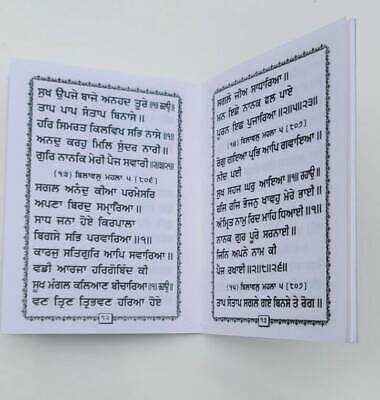 ਸੁਖ ਉਪਜੇ ਬਾਜੇ ਅਨਹਦ ਤੂਰੇ॥੧॥ ਰਹਾਉ॥
ਤਾਪ ਪਾਪ ਸੰਤਾਪ ਬਿਨਾਸੇ॥
ਹਰਿ ਸਿਮਰਤ ਕਿਲਵਿਖ ਸਭਿ ਨਾਸੇ॥੧॥
ਅਨਦੁ ਕਰਹੁ ਮਿਲਿ ਸੁੰਦਰ ਨਾਰੀ॥
ਗੁਰਿ ਨਾਨਕਿ ਮੇਰੀ ਪੈਜ ਸਵਾਰੀ॥੨॥੩॥੨੧॥
(੧੩) ਬਿਲਾਵਲੁ ਮਹਲਾ ੫ (੮੦੬)
ਸਗਲ ਅਨੰਦੁ ਕੀਆ ਪਰਮੇਸਰਿ
ਅਪਣਾ ਬਿਰਦੁ ਸਮ੍ਹਾਰਿਆ॥
ਸਾਧ ਜਨਾ ਹੋਏ ਕਿਰਪਾਲਾ
ਬਿਗਸੇ ਸਭਿ ਪਰਵਾਰਿਆ॥੧॥
ਕਾਰਜੁ ਸਤਿਗੁਰਿ ਆਪਿ ਸਵਾਰਿਆ॥
ਵਡੀ ਆਰਜਾ ਹਰਿਗੋਬਿੰਦ ਕੀ
ਸੂਖ ਮੰਗਲ ਕਲਿਆਣ ਬੀਚਾਰਿਆ॥੧॥ ਰਹਾਉ॥
ਵਣ ਤ੍ਰਿਣ ਤ੍ਰਿਭਵਣ ਹਰਿਆ ਹੋਏ
੧੨
ਸਗਲੇ ਜੀਅ ਸਾਧਾਰਿਆ॥
ਮਨ ਇਛੇ ਨਾਨਕ ਫਲ ਪਾਏ
ਪੂਰਨ ਇਛ ਪੁਜਾਰਿਆ॥੨॥੫॥੨੩॥
(੧੪) ਬਿਲਾਵਲੁ ਮਹਲਾ ੫ (੮੦੭)
ਰੋਗੁ ਗਇਆ ਪ੍ਰਭਿ ਆਪਿ ਗਵਾਇਆ॥
ਨੀਦ ਪਈ
ਸੁਖ ਸਹਜ ਘਰੁ ਆਇਆ॥੧॥ ਰਹਾਉ॥
ਰਜਿ ਰਜਿ ਭੋਜਨੁ ਖਾਵਹੁ ਮੇਰੇ ਭਾਈ॥
ਅੰਮ੍ਰਿਤ ਨਾਮੁ ਰਿਦ ਮਾਹਿ ਧਿਆਈ॥੧॥
ਨਾਨਕ ਗੁਰ ਪੂਰੇ ਸਰਨਾਈ॥
ਜਿਨਿ ਅਪਨੇ ਨਾਮ ਕੀ
ਪੈਜ ਰਖਾਈ॥੨॥੮॥੨੬॥
(੧੫) ਬਿਲਾਵਲੁ ਮਹਲਾ ੫ (੮੦੭)
ਤਾਪ ਸੰਤਾਪ ਸਗਲੇ ਗਏ ਬਿਨਸੇ ਤੇ ਰੋਗ॥
੧੩